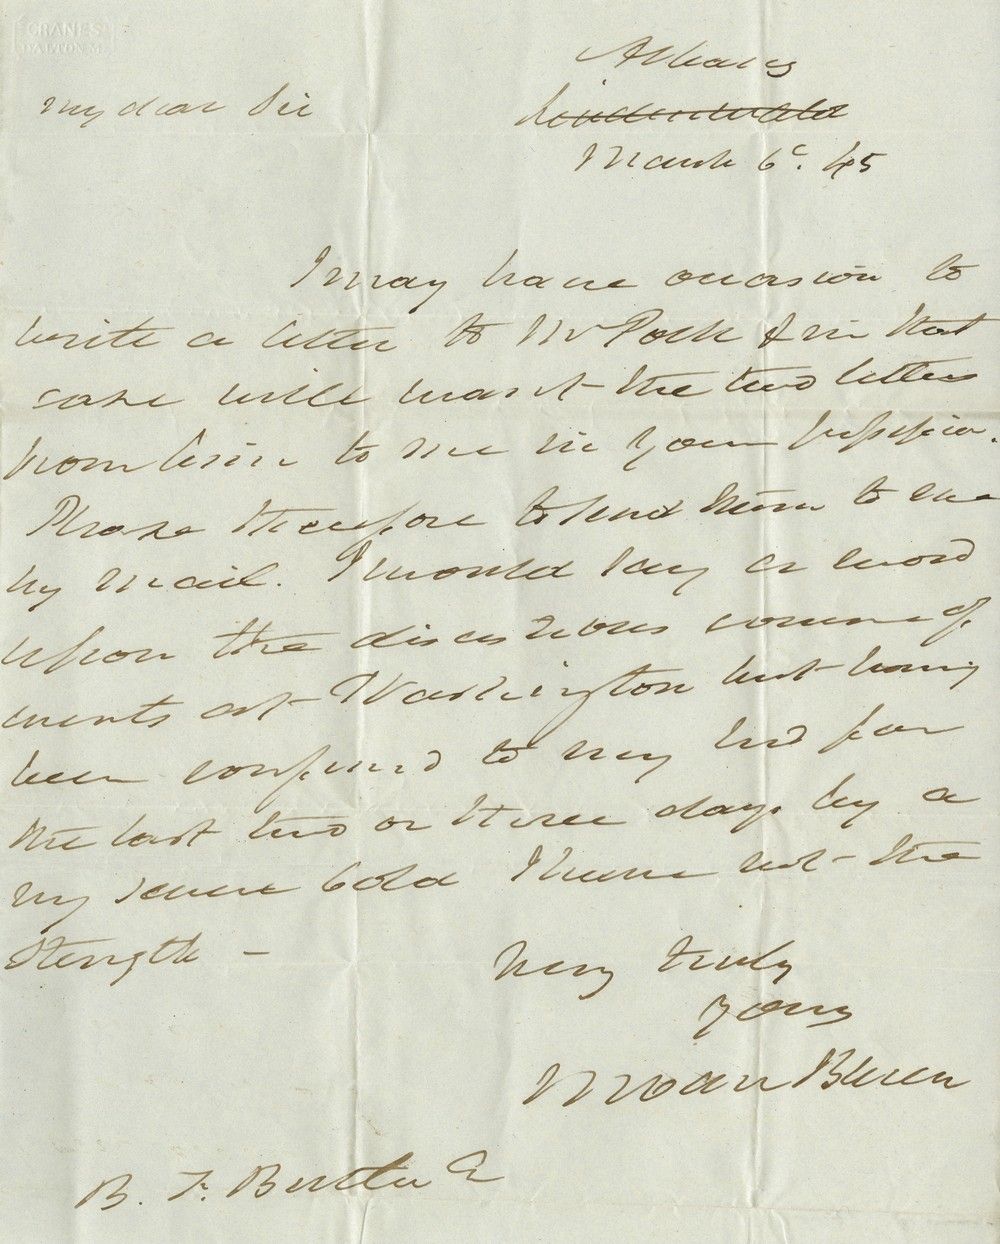 CRANES
DALTON M
Albany
My dear Sir
Lindenwald
March 6th. 45
I may have occasion to
write a letter to Mr Polk & in that
case will want the two letters
from him to me in your possession.
Please therefore to send them to me
by mail. I would say a word
upon the disastrous course of
events at Washington but having
been confined to my bed for
the last two or three days by a
very severe Cold I have not the
Strength -
Very truly
yours
M Van Buren
B. F. Butler